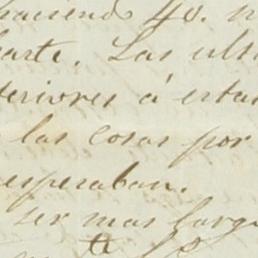 haciendo 40. n
parte. Las ulti
teriores á esta
las cosas por
esperaban.
ser mas larg
te